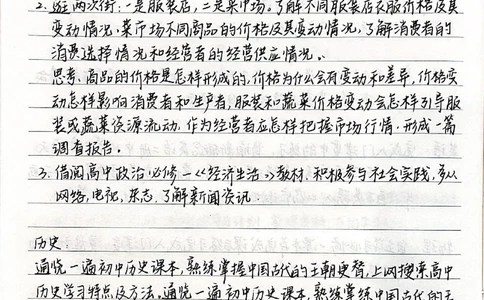 2. 逛两次街:一是服装店,二是菜市场,了解不同服装店衣服价格及其
变动情况,菜市场不同商品的价格及其变动情况,了解消费者的
消费选择情况和经营者的经营供应情况。
思考:商品的价格是怎样形成的,价格为什么会有变动和差异,价格变
动怎样影响消费者和生产者,服装和蔬菜价格变动会怎样引导服
装或蔬菜资源流动,作为经营者应怎样把握市场行情,形成一篇
调查报告。
3. 借阅高中政治必修一《经济生活》教材,积极参与社会实践,多从
网络,电视,杂志,了解新闻资讯.
历史:
通览一遍初中历史课本,熟练掌握中国古代的王朝更替,上网搜索高中
历史学习特点及方法,通览一遍初中历史课本,熟练掌握中国古代的王